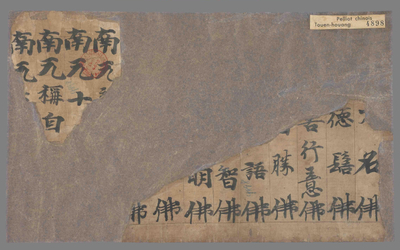 Pelliot chinois
Touen-houang 4898
名佛
德髻佛
行意佛
勝佛
語佛
智佛
明佛
佛
佛
南无
南无十
南无稱自
南无